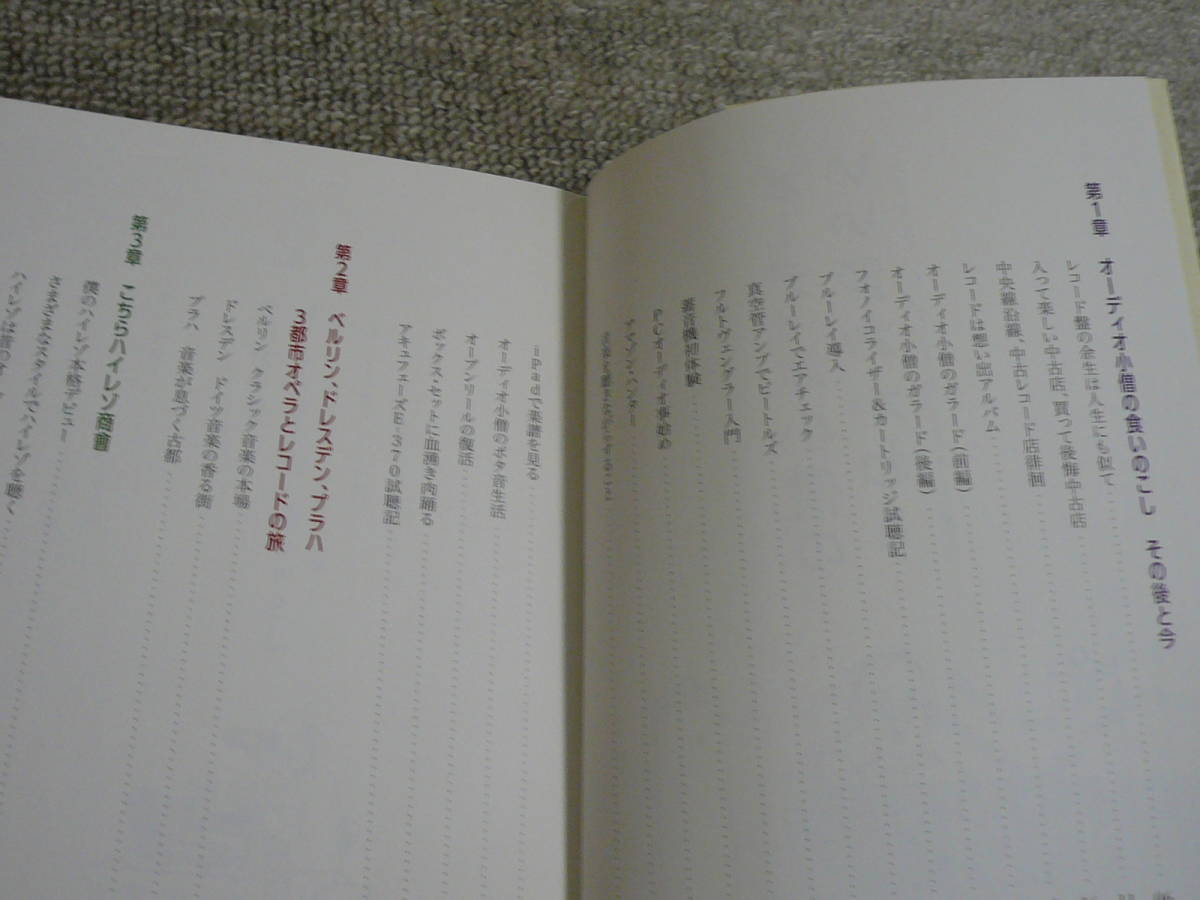 第1章 オーディオ小僧の食いのこし その後と今
レコード盤の余生は人生にも似て
入って楽しい中古店、買って後悔中古店
中央線沿線、中古レコード店徘徊
レコードは想い出アルバム
オーディオ小僧のガラード(前編)
オーディオ小僧のガラード(後編)
フォノイコライザー&カートリッジ試聴記
ブルーレイ導入
ブルーレイでエアチェック
真空管アンプでビートルズ
フルトヴェングラー入門
蓄音機初体験
PCオーディオ事始め
アマゾン・ハンター
iPadで楽譜を見る
オーディオ小僧のボタ音生活
オープンリールの復活
ボックス・セットに血湧き肉踊る
アキュフェーズE-370試聴記
第2章 ベルリン、ドレスデン、プラハ
3都市オペラとレコードの旅
ベルリン クラシック音楽の本場
ドレスデン ドイツ音楽の香る街
プラハ 音楽が息づく古都
第3章 こちらハイレゾ商會
僕のハイレゾ本格デビュー
さまざまなスタイルでハイレゾを聴く
ハイレゾは昔の